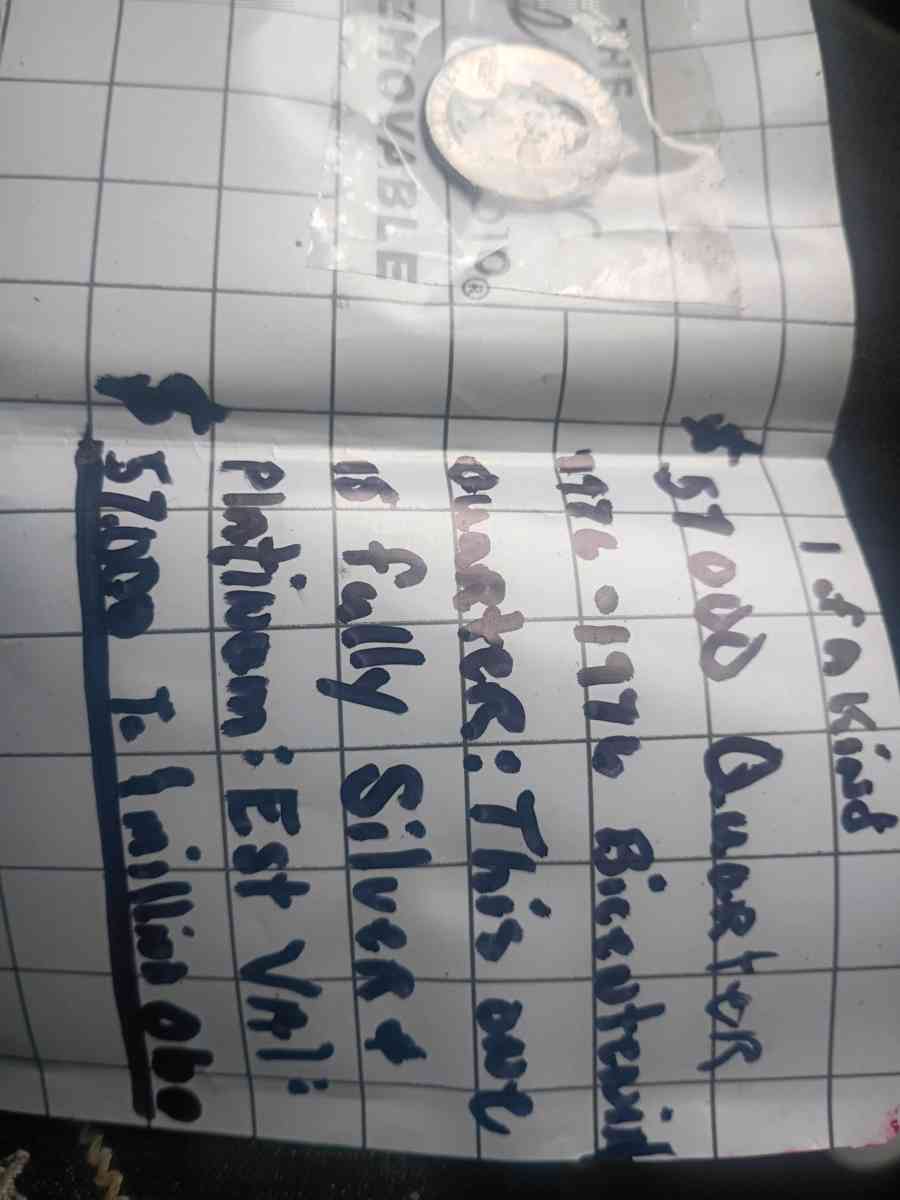 THE
EMOVABLE
®
1 of A Kind
$ 57000 QuaRteR
1776-1976 Bicentenial
QuaRteR: This owe
is fully SilveR +
Platinum: Est VAl:
$ 57.000 T. 1 million obo